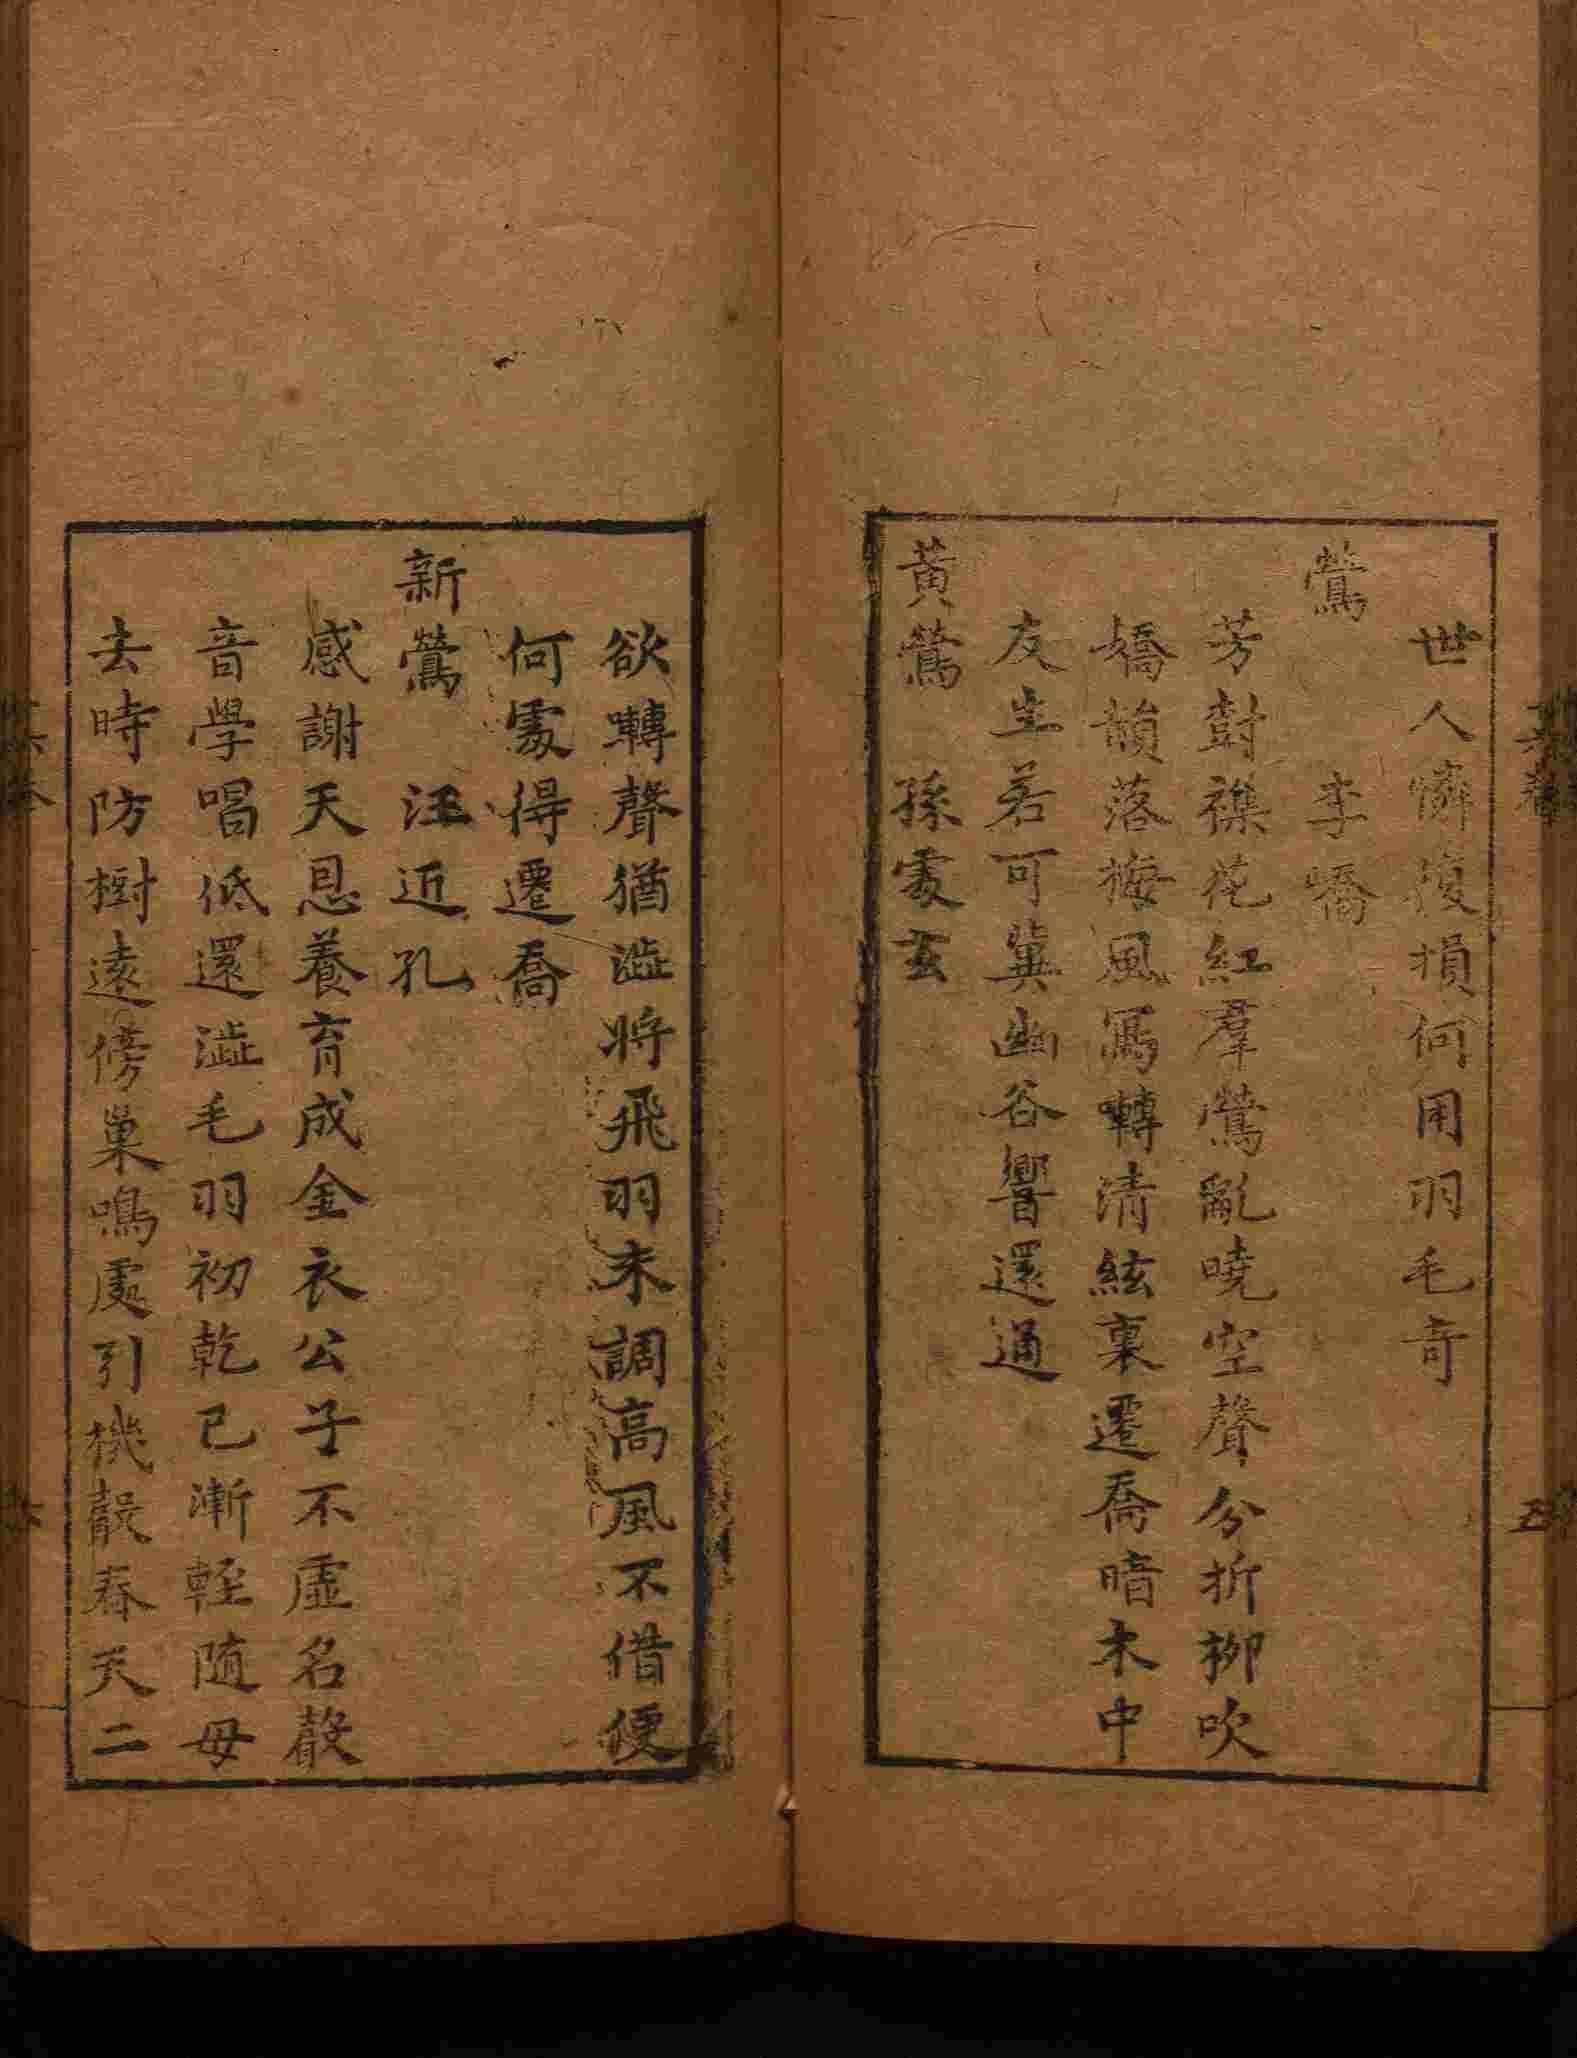 世人憐復損何用羽毛奇
鶯 李嶠
芳樹襍花紅羣鶯亂曉空聲分折柳吹
嬌韻落梅風寫囀清絃裏遷喬暗木中
友生若可冀幽谷響還通
黃鶯 孫處玄
欲囀聲猶澁將飛羽未調高風不借便
何處得遷喬
新鶯 汪近孔
感謝天恩養育成金衣公子不虛名聲
音學唱低還澁毛羽初乾已漸輕隨母
去時防樹遠傍巢鳴處引機聲春天二